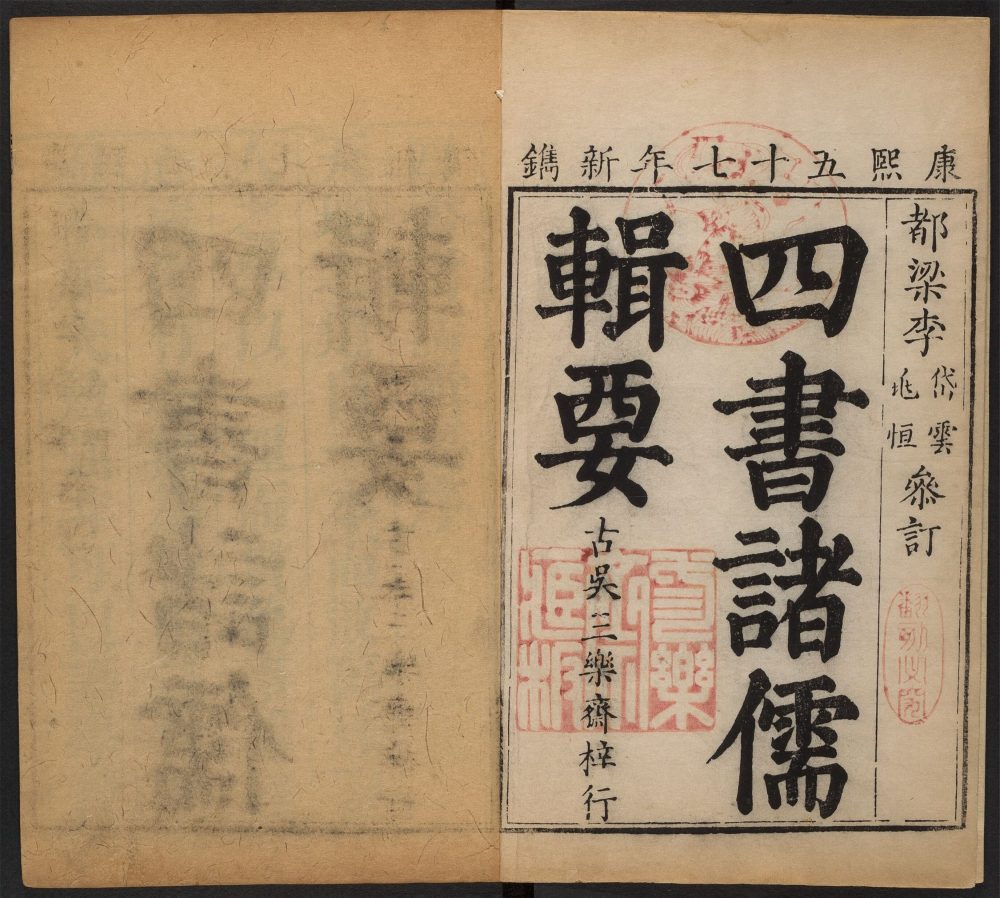 康熙五十七年新鐫
都梁李
岱雲
兆恒
叅訂
四書諸儒
輯要
古吳三樂齋梓行